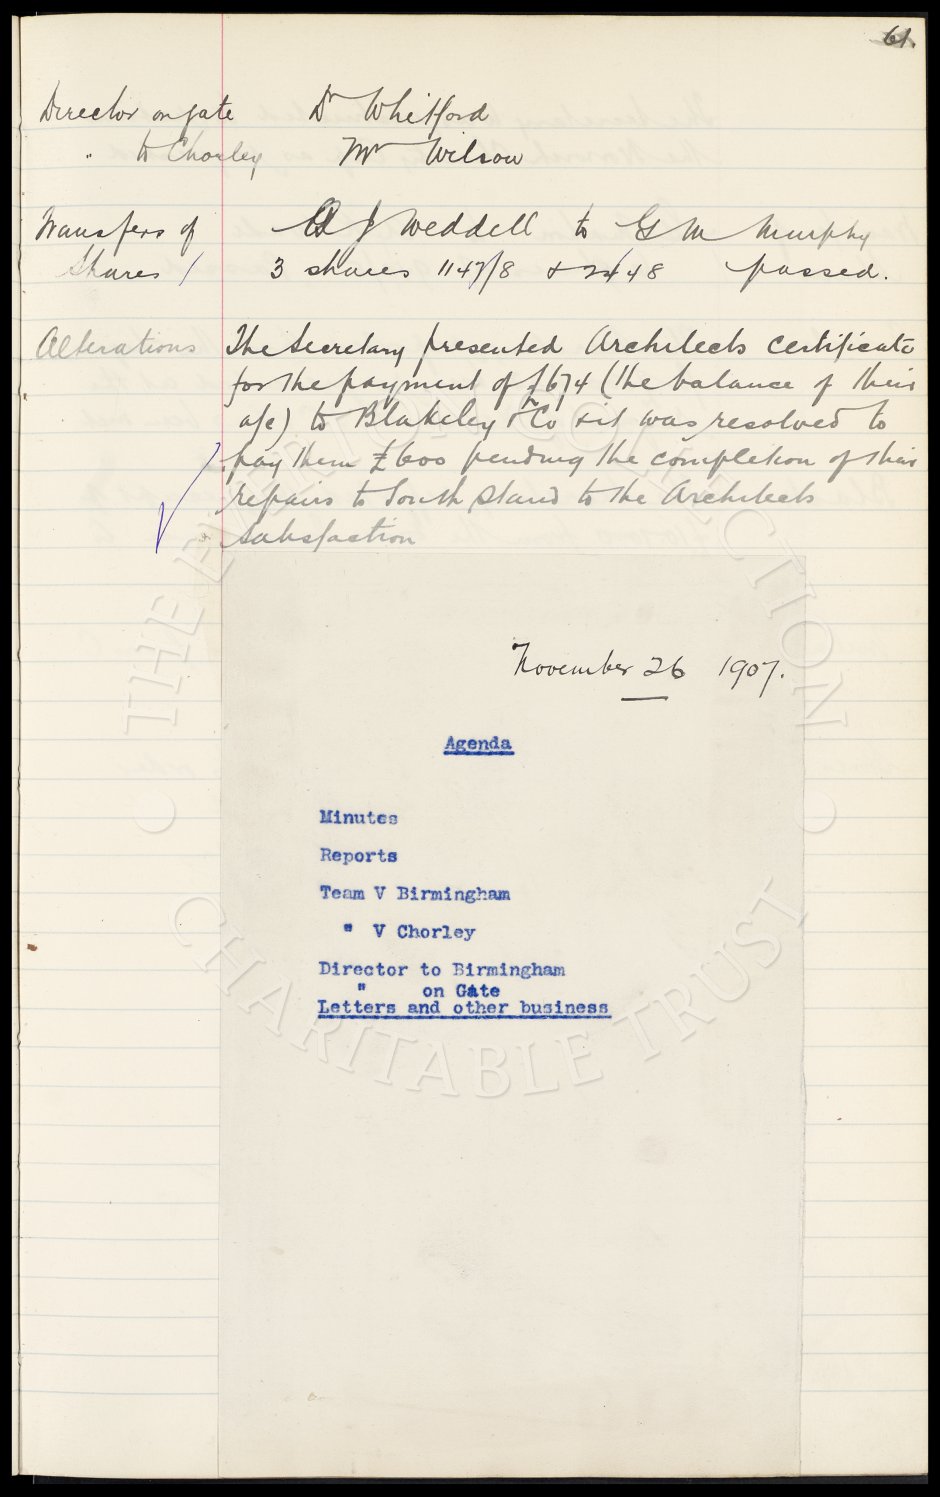 61.
Director on gate Dr Whitford
" to Chorley Mr Wilson
Transfers of A J Weddell to G M Murphy
Shares 3 shares 1147/8 & 2448 passed.
Alterations The Secretary presented Architects certificate
for the payment of £674 (the balance of their
a/c) to Blakeley & Co & it was resolved to
pay them £600 pending the completion of their
repairs to South Stand to the Architects
satisfaction
November 26 1907.
Agenda
Minutes
Reports
Team V Birmingham
" V Chorley
Director to Birmingham
" on Gate
Letters and other business
THE EVERTON COLLECTION
CHARITABLE TRUST